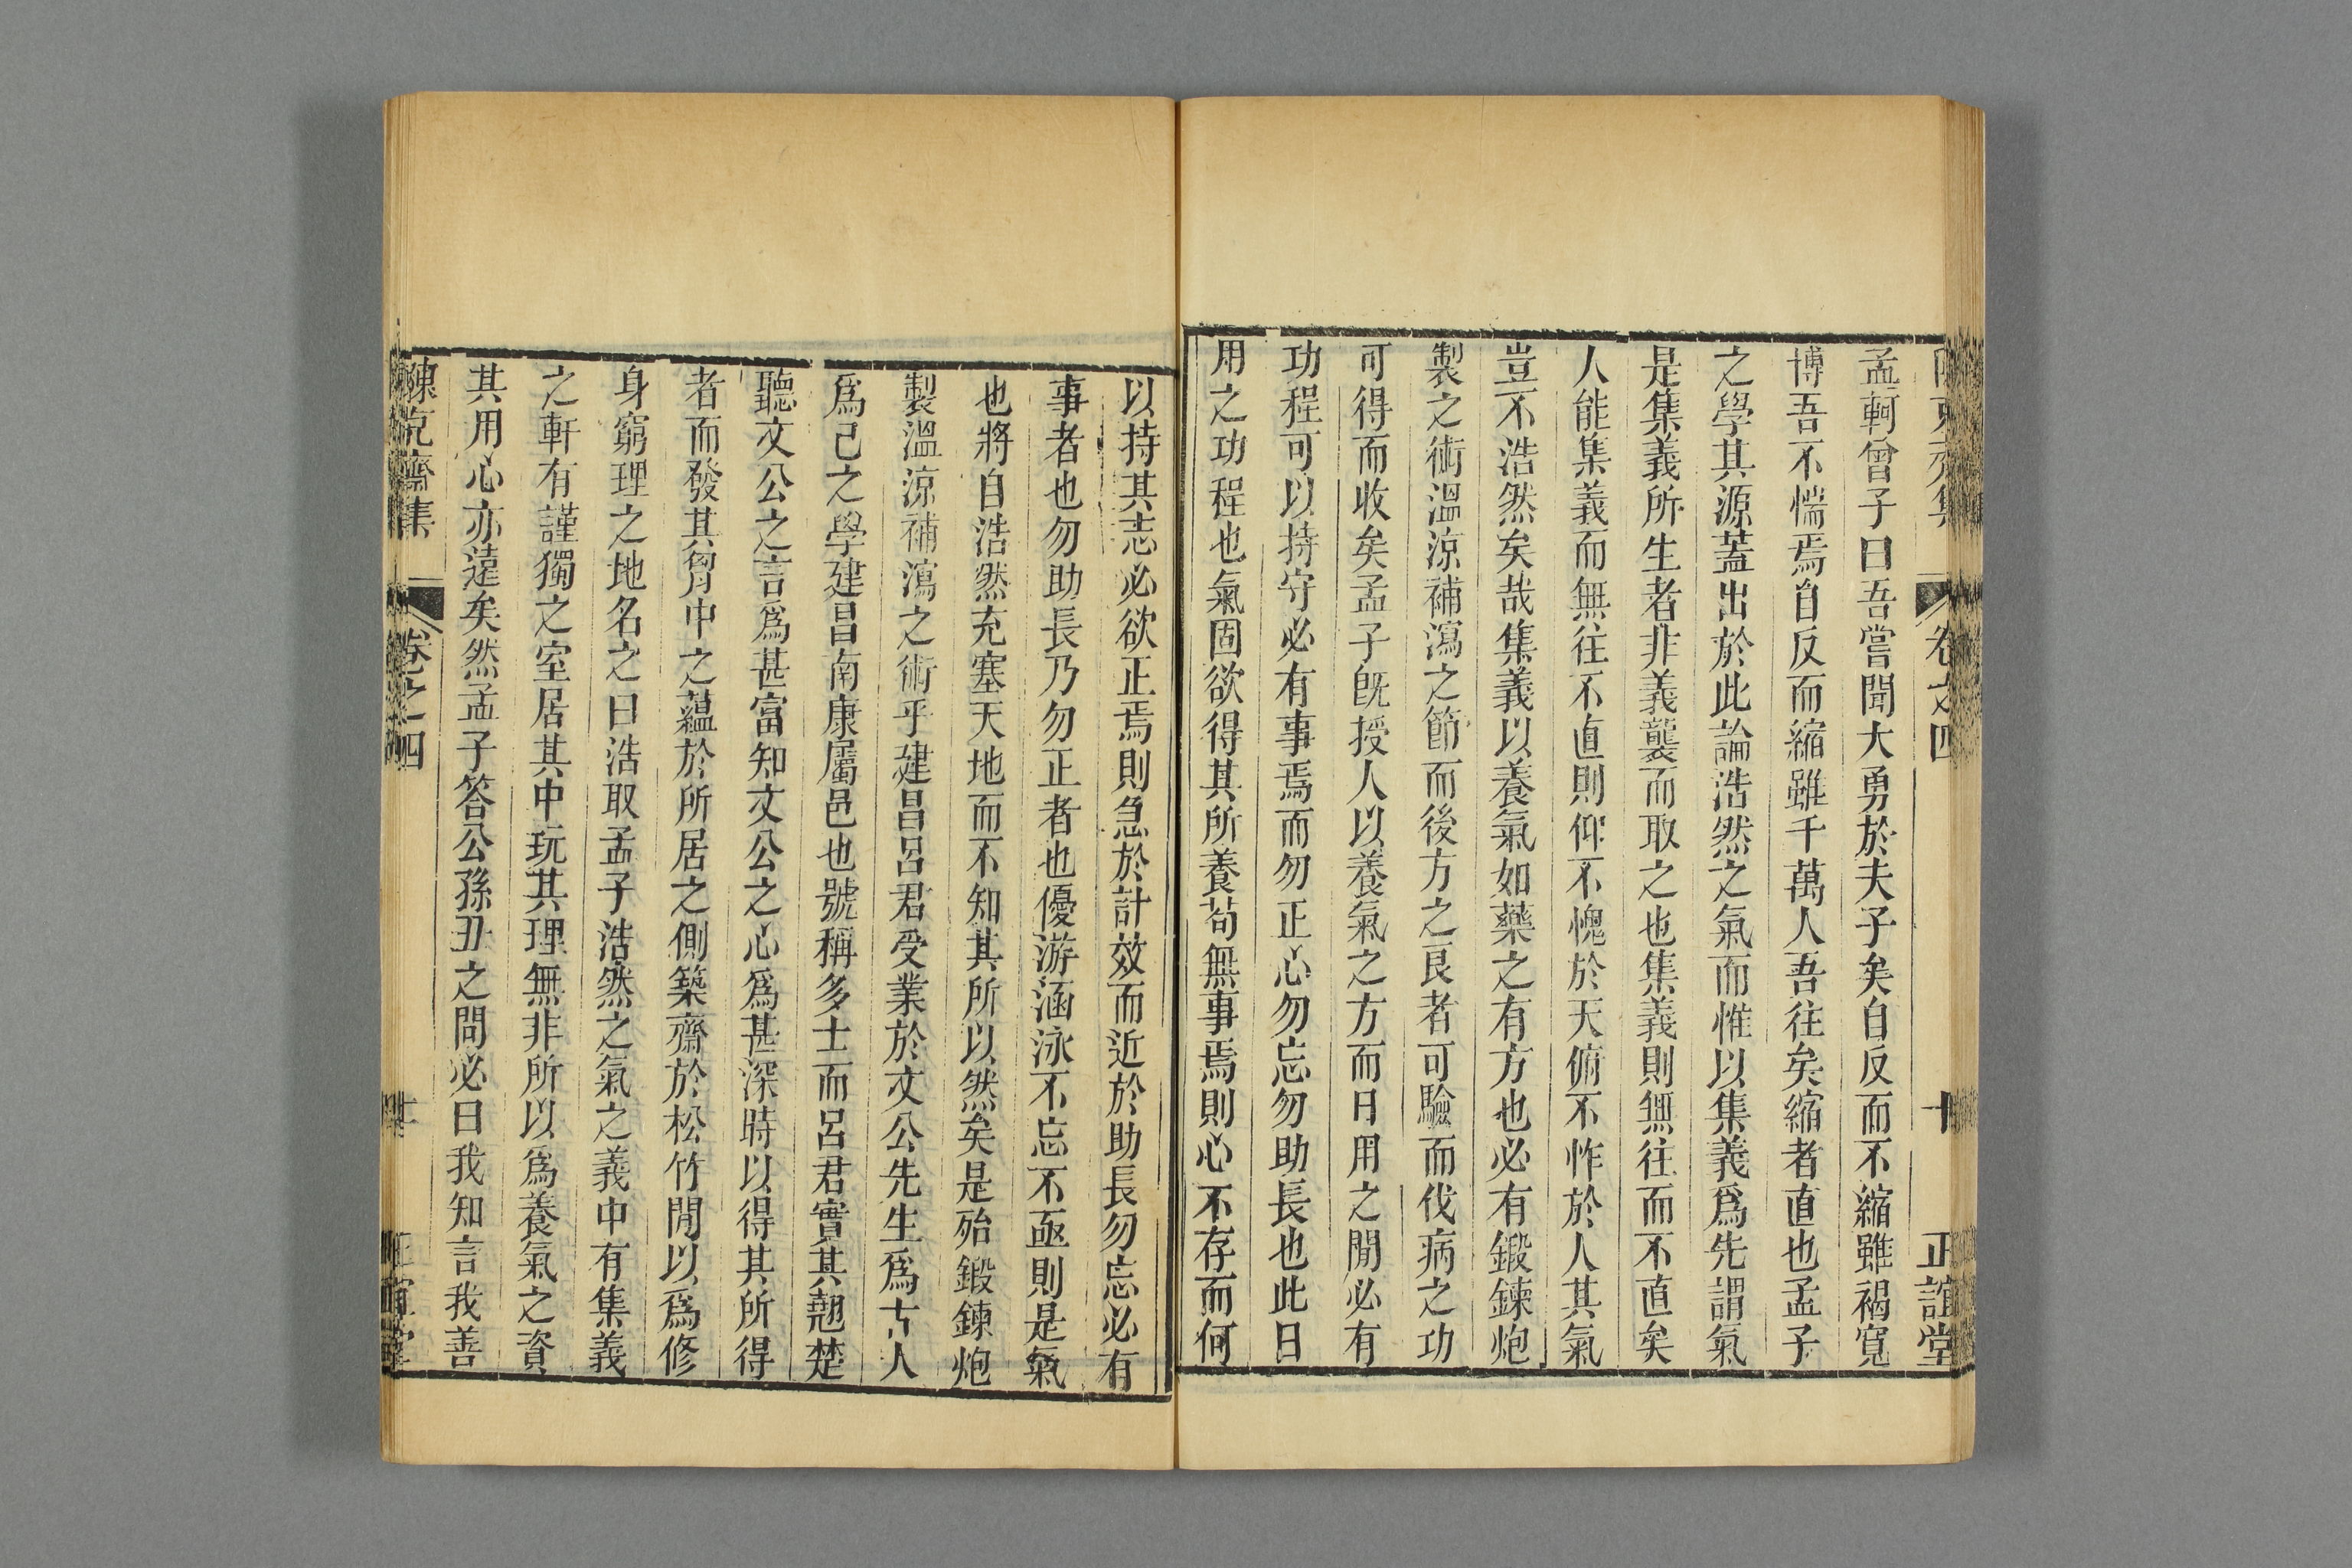 陳克齋集 卷之四 十 正誼堂
孟軻曾子曰吾嘗聞大勇於夫子矣自反而不縮雖褐寬
博吾不惴焉自反而縮雖千萬人吾往矣縮者直也孟子
之學其源蓋出於此論浩然之氣而惟以集義爲先謂氣
是集義所生者非義襲而取之也集義則無往而不直矣
人能集義而無往不直則仰不愧於天俯不怍於人其氣
豈不浩然矣哉集義以養氣如藥之有方也必有鍛鍊炮
製之術溫涼補瀉之節而後方之良者可驗而伐病之功
可得而收矣孟子旣授人以養氣之方而日用之閒必有
功程可以持守必有事焉而勿正心勿忘勿助長也此日
用之功程也氣固欲得其所養苟無事焉則心不存而何
以持其志必欲正焉則急於計效而近於助長勿忘必有
事者也勿助長乃勿正者也優游涵泳不忘不亟則是氣
也將自浩然充塞天地而不知其所以然矣是殆鍛鍊炮
製溫涼補瀉之術乎建昌呂君受業於文公先生爲古人
爲己之學建昌南康屬邑也號稱多士而呂君實其翹楚
聽文公之言爲甚富知文公之心爲甚深時以得其所得
者而發其胷中之蘊於所居之側築齋於松竹閒以爲修
身窮理之地名之曰浩取孟子浩然之氣之義中有集義
之軒有謹獨之室居其中玩其理無非所以爲養氣之資
其用心亦遠矣然孟子答公孫丑之問必曰我知言我善
陳克齋集 卷之四